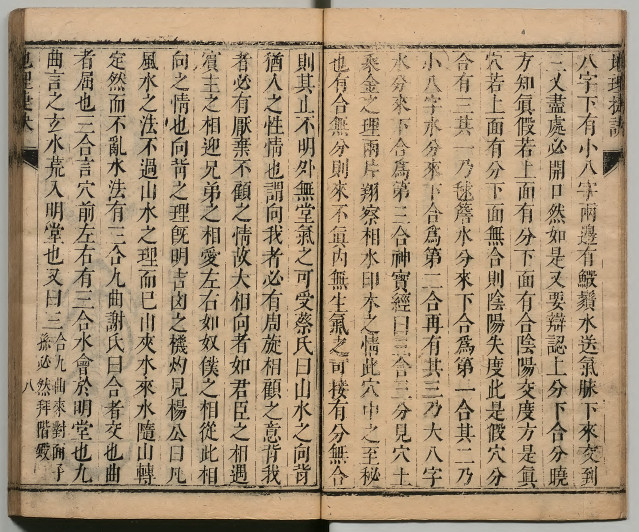 八字下有小八字兩邊有鰕鬚水送氣脉下來交到
三乂盡處必開口然如是又要辯認上分下合分曉
方知眞假若上面有分下面有合陰陽交度方是眞
穴若上面有分下面無合則陰陽失度此是假穴分
合有三其一乃毬簷水分來下合爲第一合其二乃
小八字水分來下合爲第二合再有其三乃大八字
水分來下合爲第三合神寶經曰三合三分見穴土
乘金之理兩片翔察相水印木之情此穴中之至秘
也有合無分則來不眞內無生氣之可接有分無合
則其止不明外無堂氣之可受蔡氏曰山水之向背
猶人之性情也謂向我者必有周旋相顧之意背我
者必有厭棄不顧之情故大相向者如君臣之相遇
賓主之相迎兄弟之相愛左右如奴僕之相從此相
向之情也向背之理旣明吉凶之機灼見楊公曰凡
風水之法不過山水之理而已山來水來水隨山轉
定然而不亂水法有三合九曲謝氏曰合者交也曲
者屈也三合言穴前左右有三合水會於明堂也九
曲言之玄水荒入明堂也又曰三合九曲來對面子
孫必然拜階
八